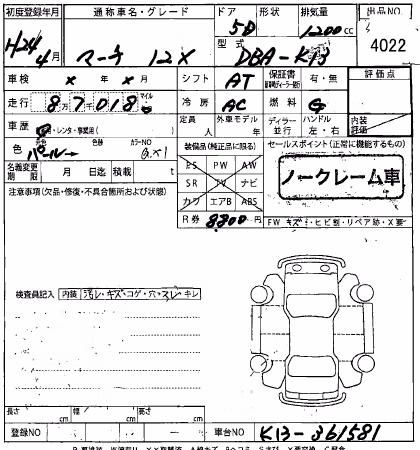 初度登録年月 通称車名・グレード ドア 形状 排気量 出品NO
H24 4月 マーチ 12X 5D 1200cc
型式 DBA-K13 4022
車検 × 年 × 月 シフト AT 保証書 有・無 評価点
走行 87018 マイル 冷房 AC 燃料 G
車歴 レンタ・事業用( ) 定員 人 外車モデル 年 ディーラー 並行 ハンドル 左・右 内装評価
色 パール 色替 カラーNO QX1
装備品(純正品に限る) セールスポイント(正常に機能するもの)
名義変更期限 月 日迄 積載 t
PS PW AW
SR TV ナビ
カワ エアB ABS
ノークレーム車
注意事項(欠品・修復・不具合箇所および状態)
R券 8800円 FW キズ・ヒビ割・リペア跡・X要
検査員記入 内装 汚レ・キズ・コゲ・穴・スレ・キレ
長さ cm 幅 cm 高さ cm
登録NO ー 車台NO K13-361581